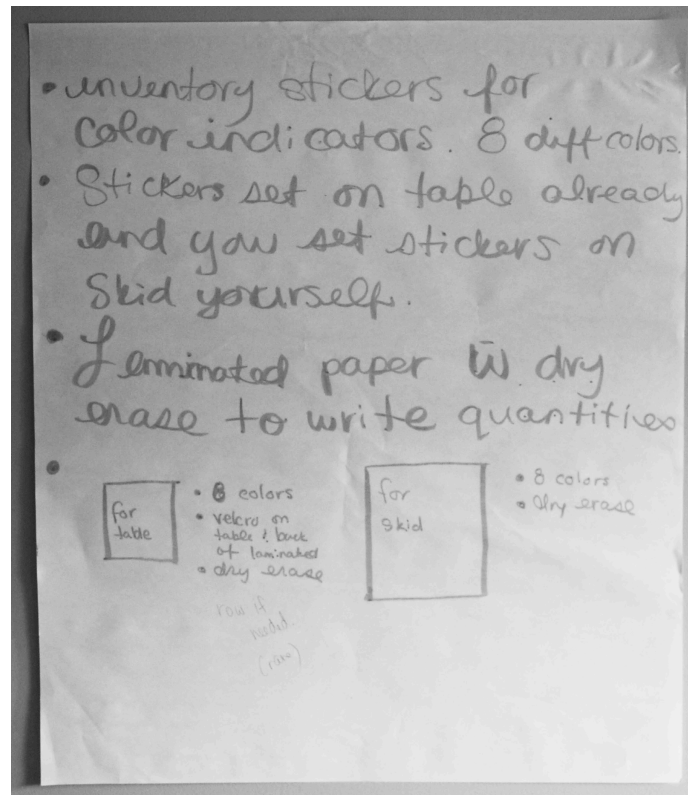 • inventory stickers for
color indicators. 8 diff colors.
• Stickers set on table already
and you set stickers on
Skid yourself.
• Leminated paper w̄ dry
erase to write quantities
•
for
table
• 8 colors
• velcro on
table & back
of laminated
• dry erase
row if
needed.
for
skid
• 8 colors
• dry erase